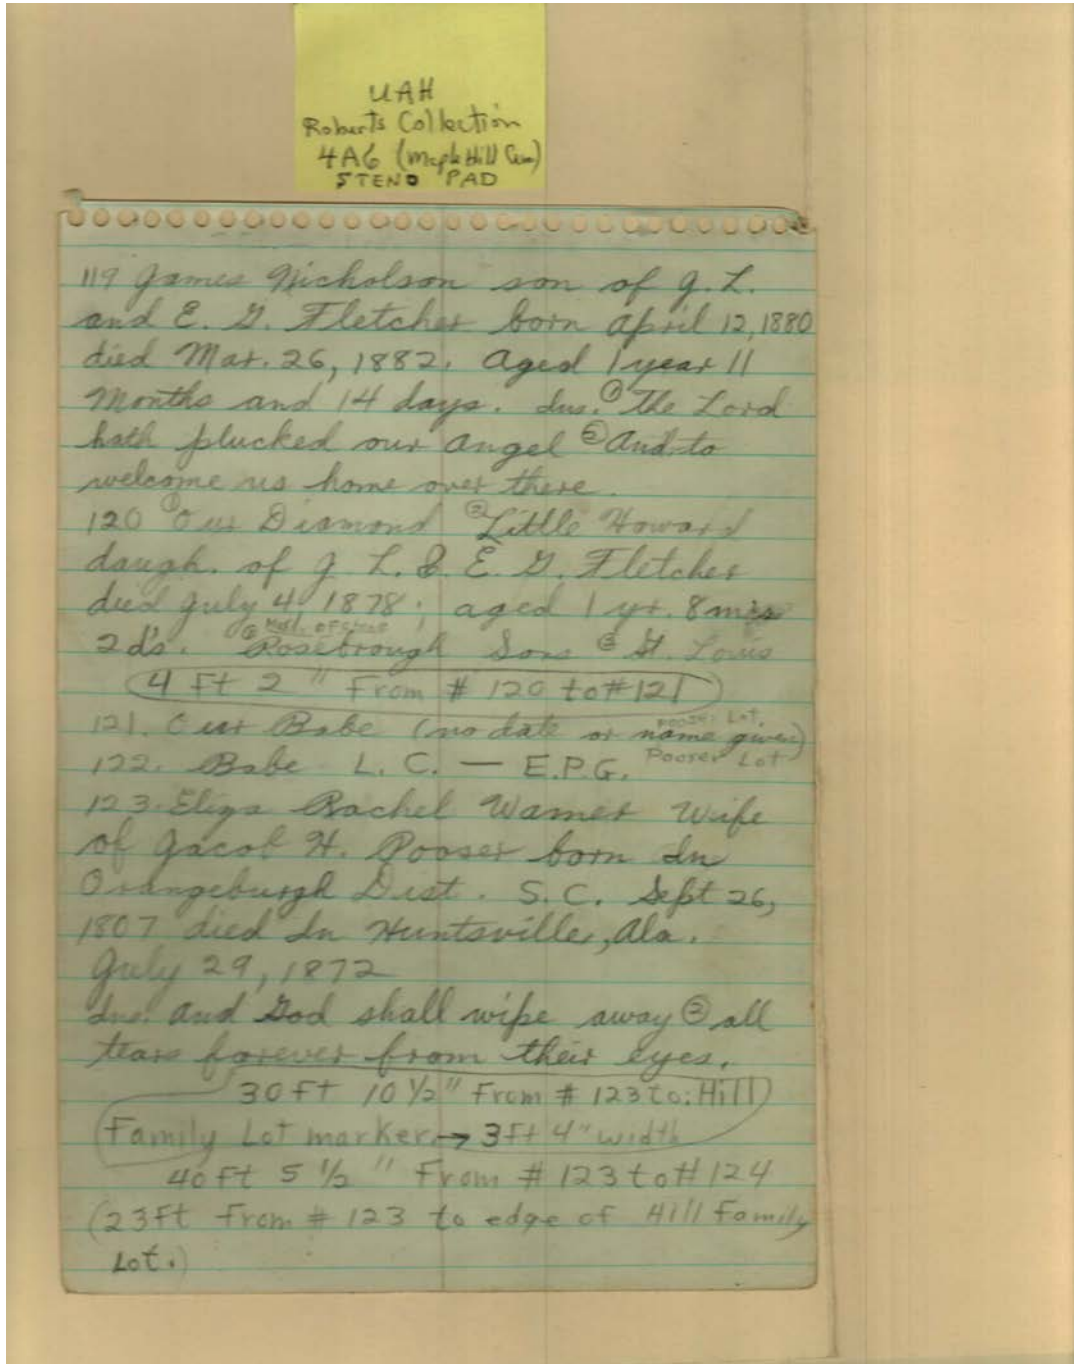 UAH
Roberts Collection
4A6 (Maple Hill Cem)
STENO PAD
119 James Nicholson son of J. L.
and E. G. Fletcher born April 12, 1880
died Mar. 26, 1882. Aged 1 year 11
Months and 14 days. Ins. ① The Lord
hath plucked our angel ② And to
welcome us home over there.
120 ① Our Diamond ② Little Howard
daugh. of J. L. & E. G. Fletcher
died July 4, 1878; aged 1 yr. 8 mos
2 d's. ① Rosebrough Sons ② St. Louis
4 Ft 2" From # 120 to # 121
121. Our Babe (no date or name given)
Pooser Lot.
122. Babe L. C. — E.P.G. Pooser Lot
123. Eliza Rachel Warner Wife
of Jacob H. Pooser born In
Orangeburgh Dist. S. C. Sept 26,
1807 died In Huntsville, Ala.
July 29, 1872
Ins. And God shall wipe away ② all
tears forever from their eyes.
30 Ft 10 1/2" From # 123 to: Hill
Family Lot marker → 3 ft 4" width
40 Ft 5 1/2" From # 123 to # 124
(23 Ft From # 123 to edge of Hill Family
Lot.)